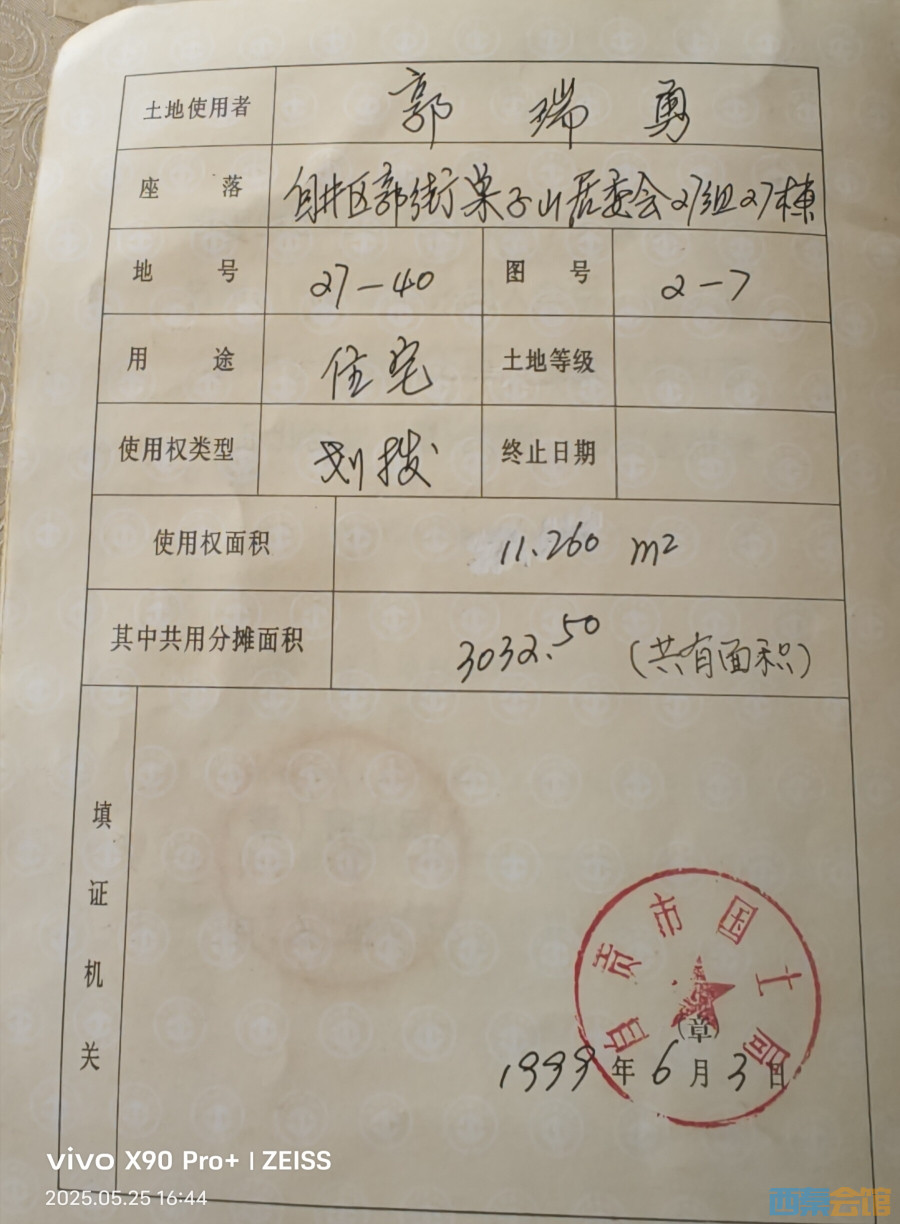 土地使用者 郭瑞勇
座落 自井区郭街菓子山居委会27组27栋
地号 27-40 图号 2-7
用途 住宅 土地等级
使用权类型 划拨 终止日期
使用权面积 11.260 m2
其中共用分摊面积 3032.50 (共有面积)
填证机关
自贡市国土局
(章)
1999年6月3日
vivo X90 Pro+ | ZEISS
2025.05.25 16:44
西秦会馆